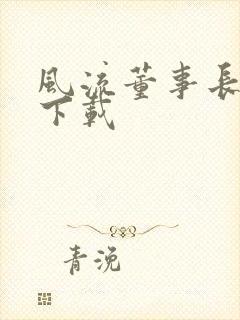 風流董事長
下載
青浼